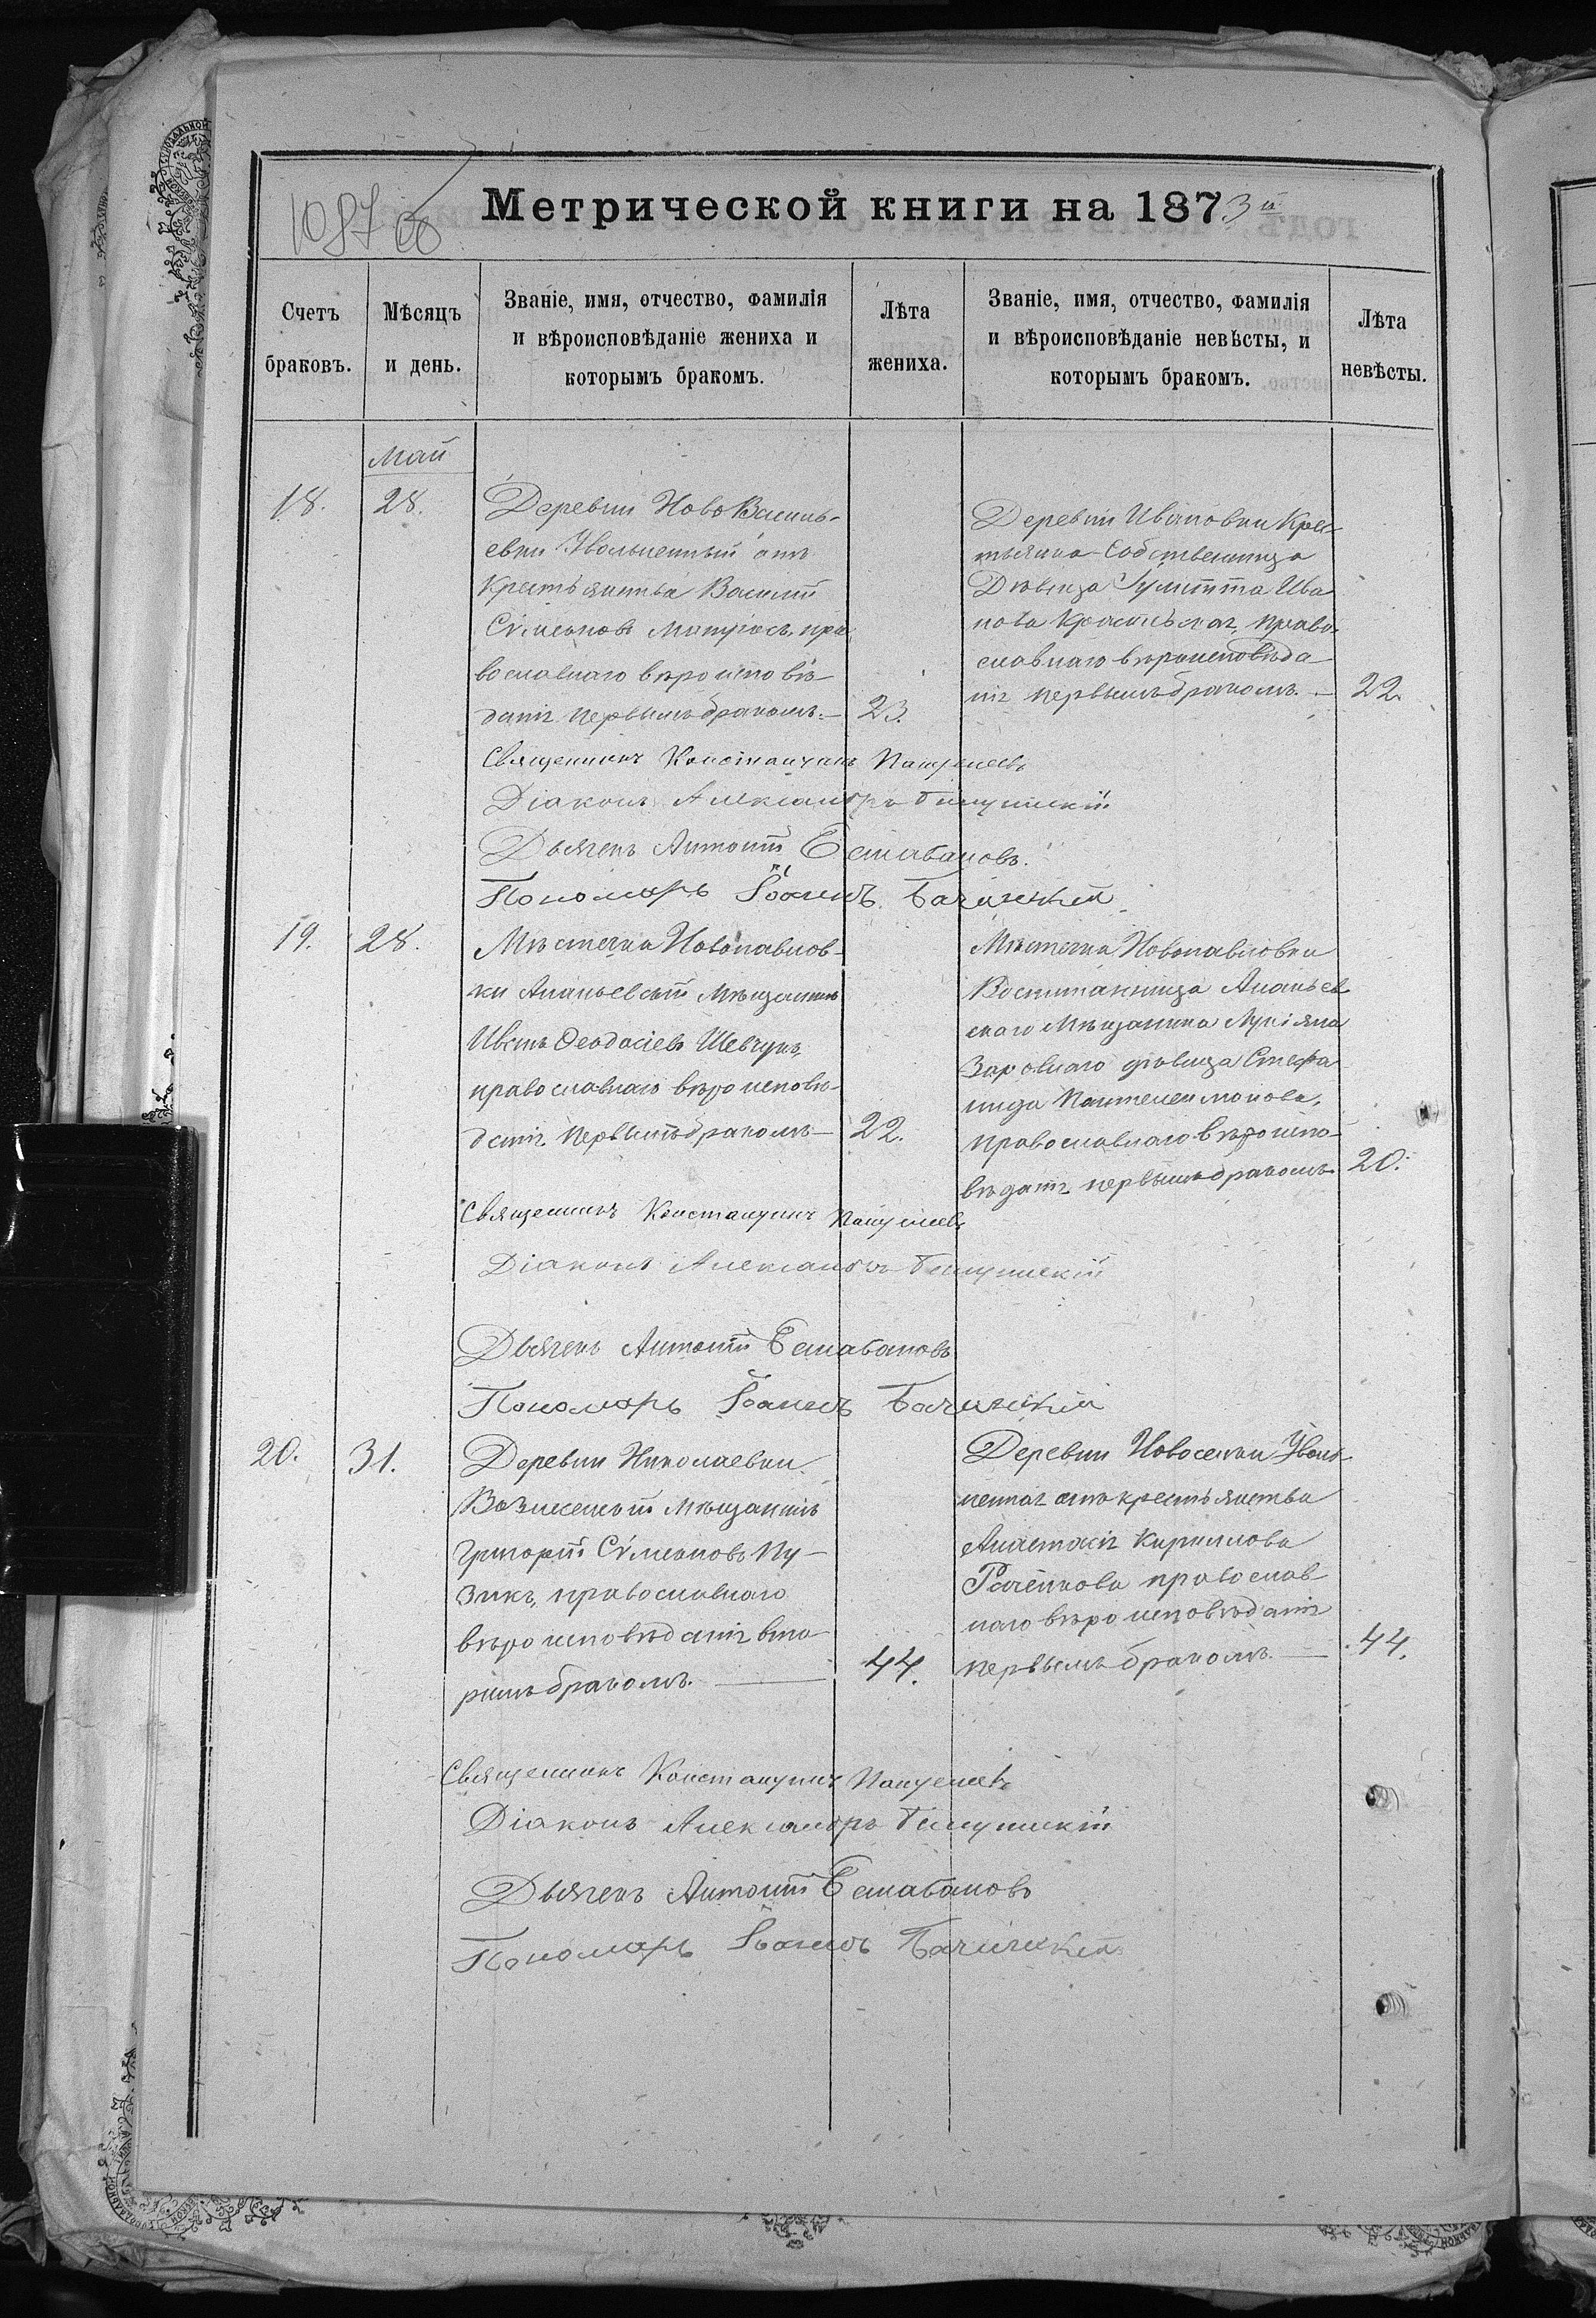 1087 об
Метрической книги на 1873й
Счетъ браковъ.
Мѣсяцъ и день.
Званіе, имя, отчество, фамилія
и вѣроисповѣданіе жениха и
которымъ бракомъ.
Лѣта жениха.
Званіе, имя, отчество, фамилія
и вѣроисповѣданіе невѣсты, и
которымъ бракомъ.
Лѣта невѣсты.
Май
18.
28.
Деревни НовоВасиль-
евки Уволненный отъ
Крестьянства Василій
Сѵмеоновъ Матросъ, пра
вославнаго вѣроисповѣ-
данія первымъ бракомъ.—
23.
Деревни Ивановки Крес-
тьянка-Собственница
Дѣвица Іулитта Ива
нова православнаго вѣроисповѣда
нія первымъ бракомъ.—
22.
Священникъ Константинъ
Діаконъ Александръ
Дьячекъ Антоній
Пономарь Іоаннъ
19.
28.
Мѣстечка Новопавлов-
ки Ананьевскій Мѣщанинъ
Иванъ Ѳеодосіевъ Шевчукъ,
православнаго вѣроисповѣ-
данія первымъ бракомъ—
22.
Мѣстечка Новопавловки
Воспитанница Ананьев
скаго Мѣщанина Лукіяна
дѣвица Стефа
нида Пантелеимонова,
православнаго вѣроиспо-
вѣданія первымъ бракомъ.
20.
Священникъ Константинъ
Діаконъ Александръ
Дьячекъ Антоній
Пономарь Іоаннъ
20.
31.
Деревни Николаевки
Вознесенскій Мѣщанинъ
Григорій Сѵмеоновъ Пу-
зикъ, православнаго
вѣроисповѣданія вто-
римъ бракомъ.—
44.
Деревни Новоселки Уволь-
ненная отъ крестьянства
Анастасія Кириллова
православ
наго вѣроисповѣданія
первымъ бракомъ.—
44.
Священникъ Константинъ
Діаконъ Александръ
Дьячекъ Антоній
Пономарь Іоаннъ